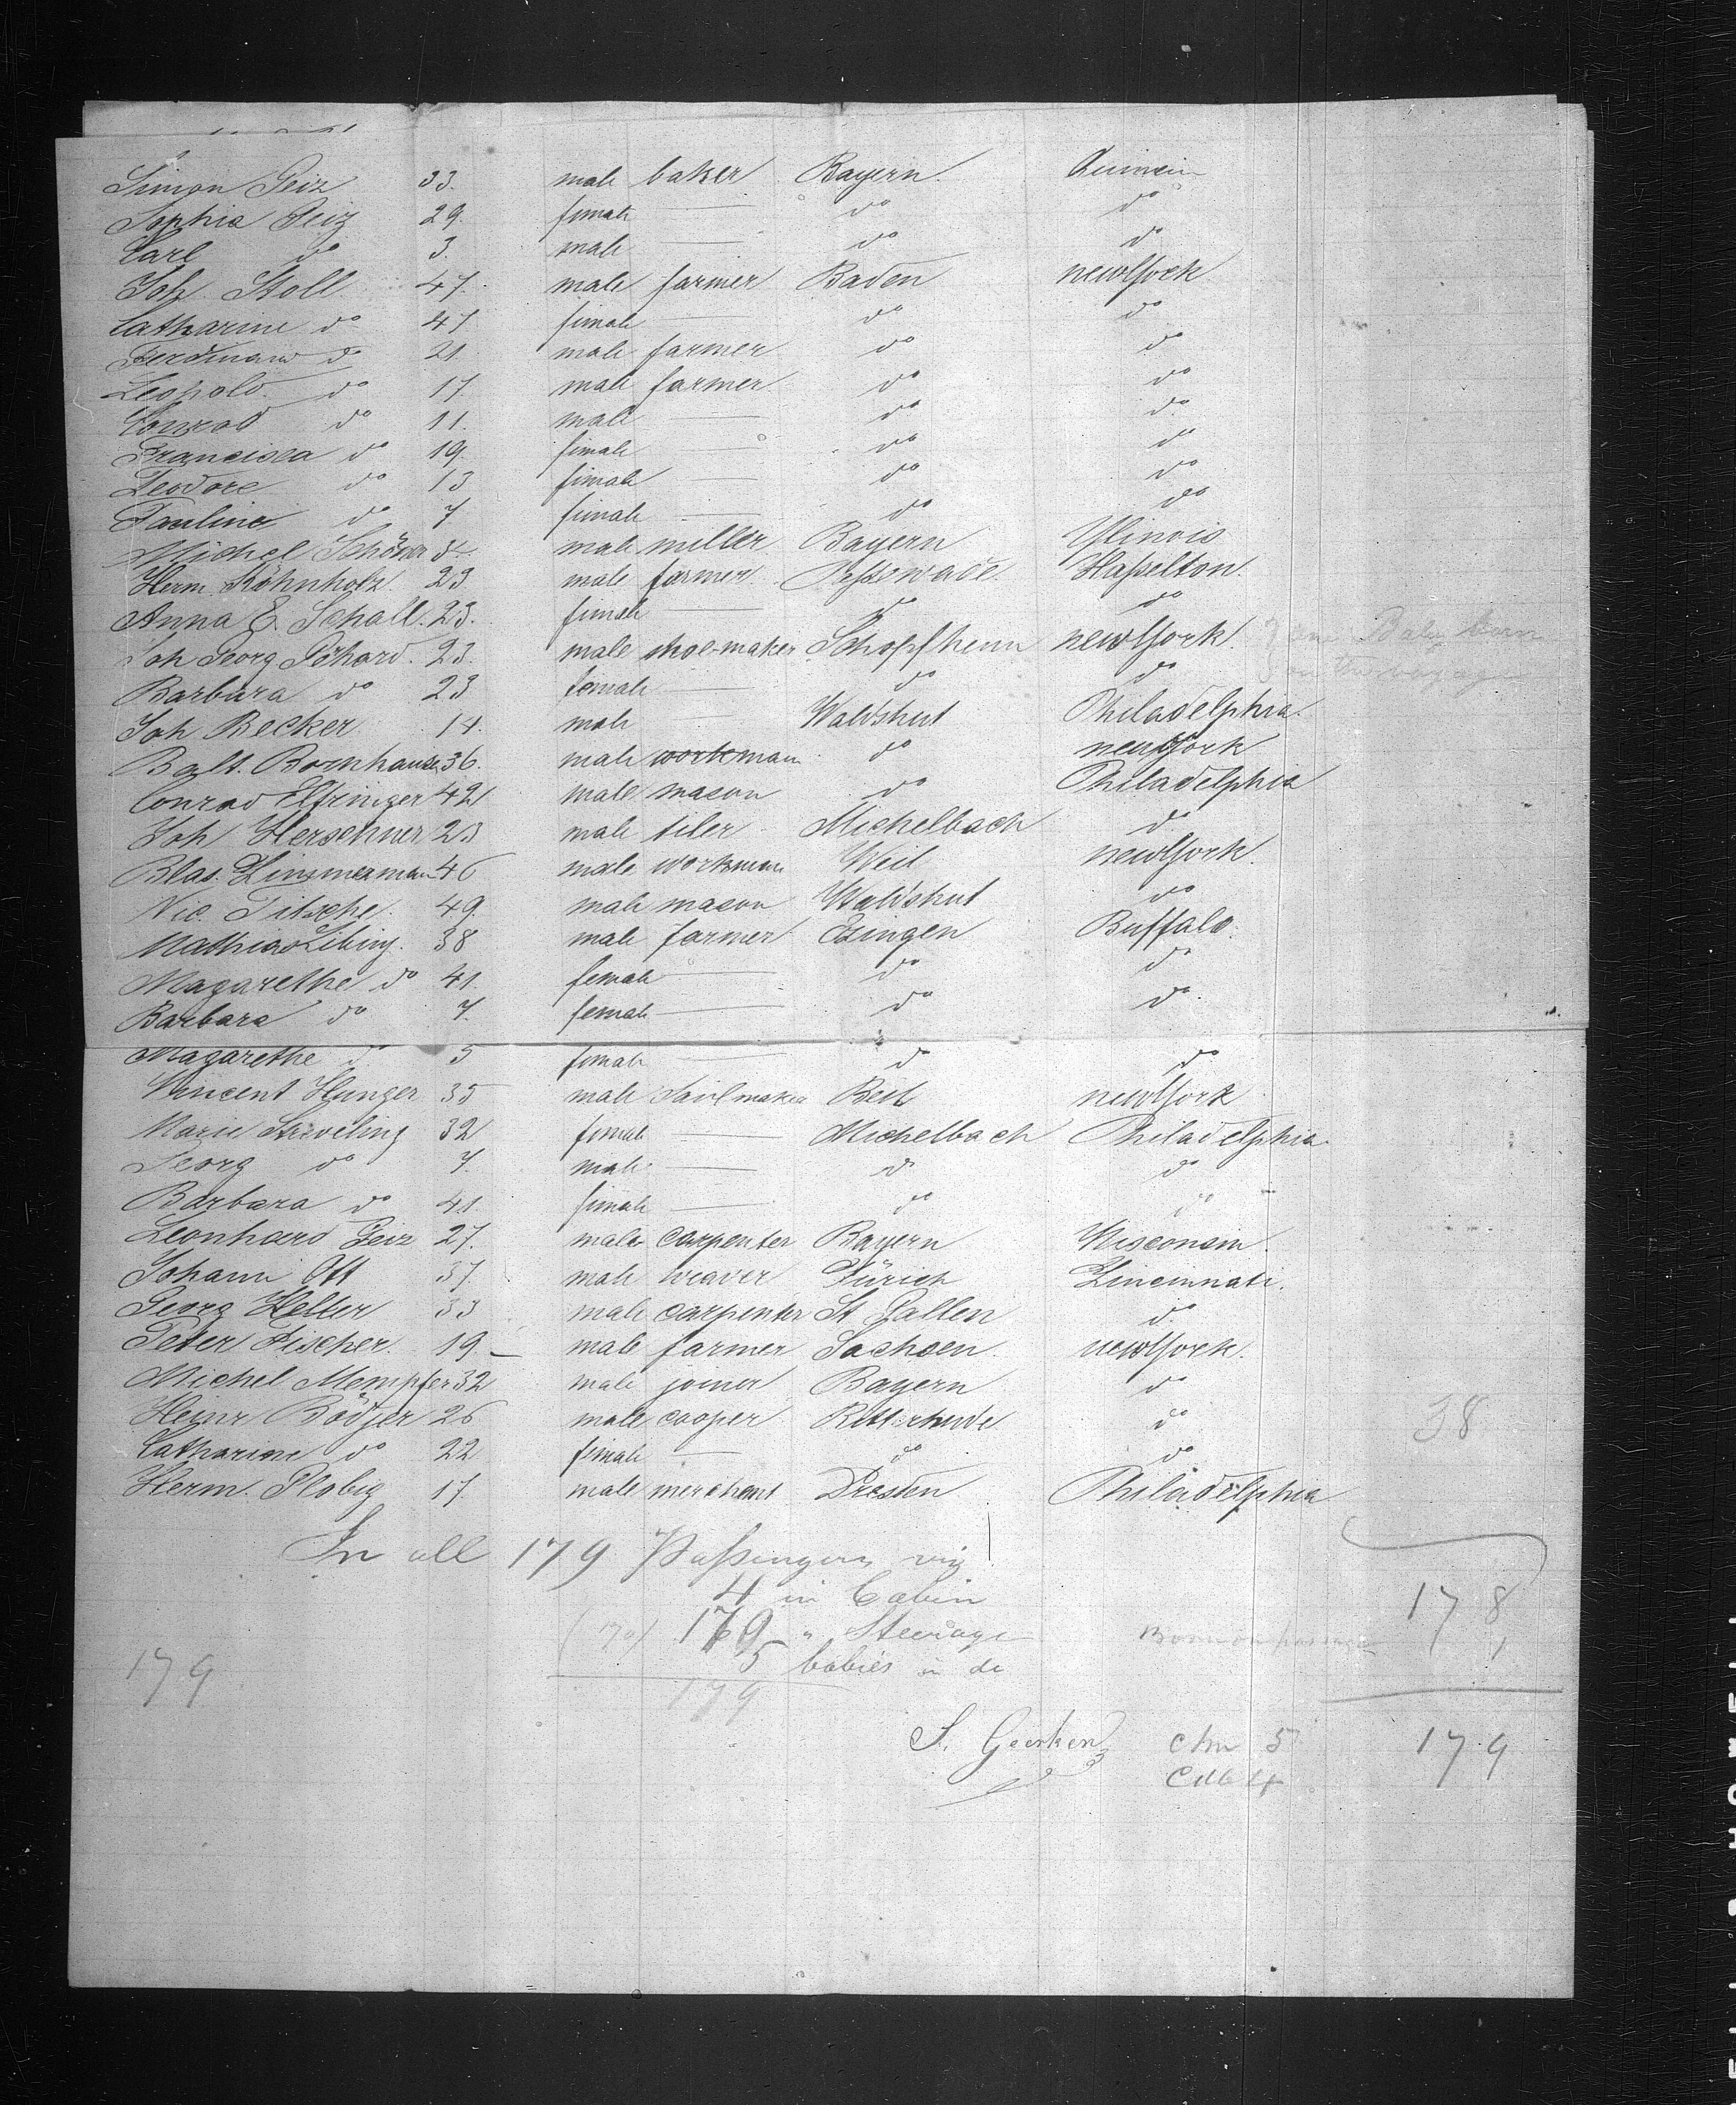 Simon Seiz 33. male baker Bayern
Sophia Seiz 29. female — do do
Carl do 3. male — do do
Joh. Stoll 47. male farmer Baden newYork
Catharine do 47 female — do do
Ferdinand do 21 male farmer do do
Leopold do 17. male farmer do do
Conrad do 11. male — do do
Francisca do 19. female — do do
Teodore do 13 female — do do
Pauline do 7 female — do do
Michel Schöner male miller Bayern Ylinois
Herm. Röhnholz. 23 male farmer Haßelton.
Anna E. Schall. 23. female — do do
Joh Georg Göhard. 23. male shoe-maker Schopfheim newYork. one Baby born
Barbara do 23 female — do do on the voyage
Joh Becker 14. male — Waldshut Philadelphia.
Balt. Bornhauser 36. male workman do newYork
Conrad Elfringer 42 male mason do Philadelphia
Joh Herschner 23 male tiler Michelbach do
Blas. Zimmerman 46 male workman Weil newYork.
Nic. Titsche. 49. male mason Waldshut do
Mathias Libing. 38 male farmer Ezingen Buffalo.
Magarethe do 41. female — do do
Barbara do 7. female — do do.
Magarethe do 5 female — do do
Vincent Hunger 35 male Sailmaker newYork
Marie Striveling 32 female — Michelbach Philadelphia.
Georg do 7. male — do do
Barbara do female — do do
Leonhard Seiz 27. male carpenter Bayern Wisconsin.
Johann Ott 37. male weaver Zürich Zincinnati.
Georg Helter 33 male carpenter St Gallen do.
Peter Fischer. 19. — male farmer Sachsen. newYork.
Michel Mempfer 32 male joiner Bayern do
Heinr Bödjer 26 male cooper Ritterhude do 38
Catharine do 22 female — do do
Herm. Plobig 17. male merchant Dresden Philadelphia
In all 179 Passengers viz
4 in Cabin 178
(170) 170 " Steerage Born on passage 1
5 babies in do
179 179
S. Geerken chn 5 179
Cab 4